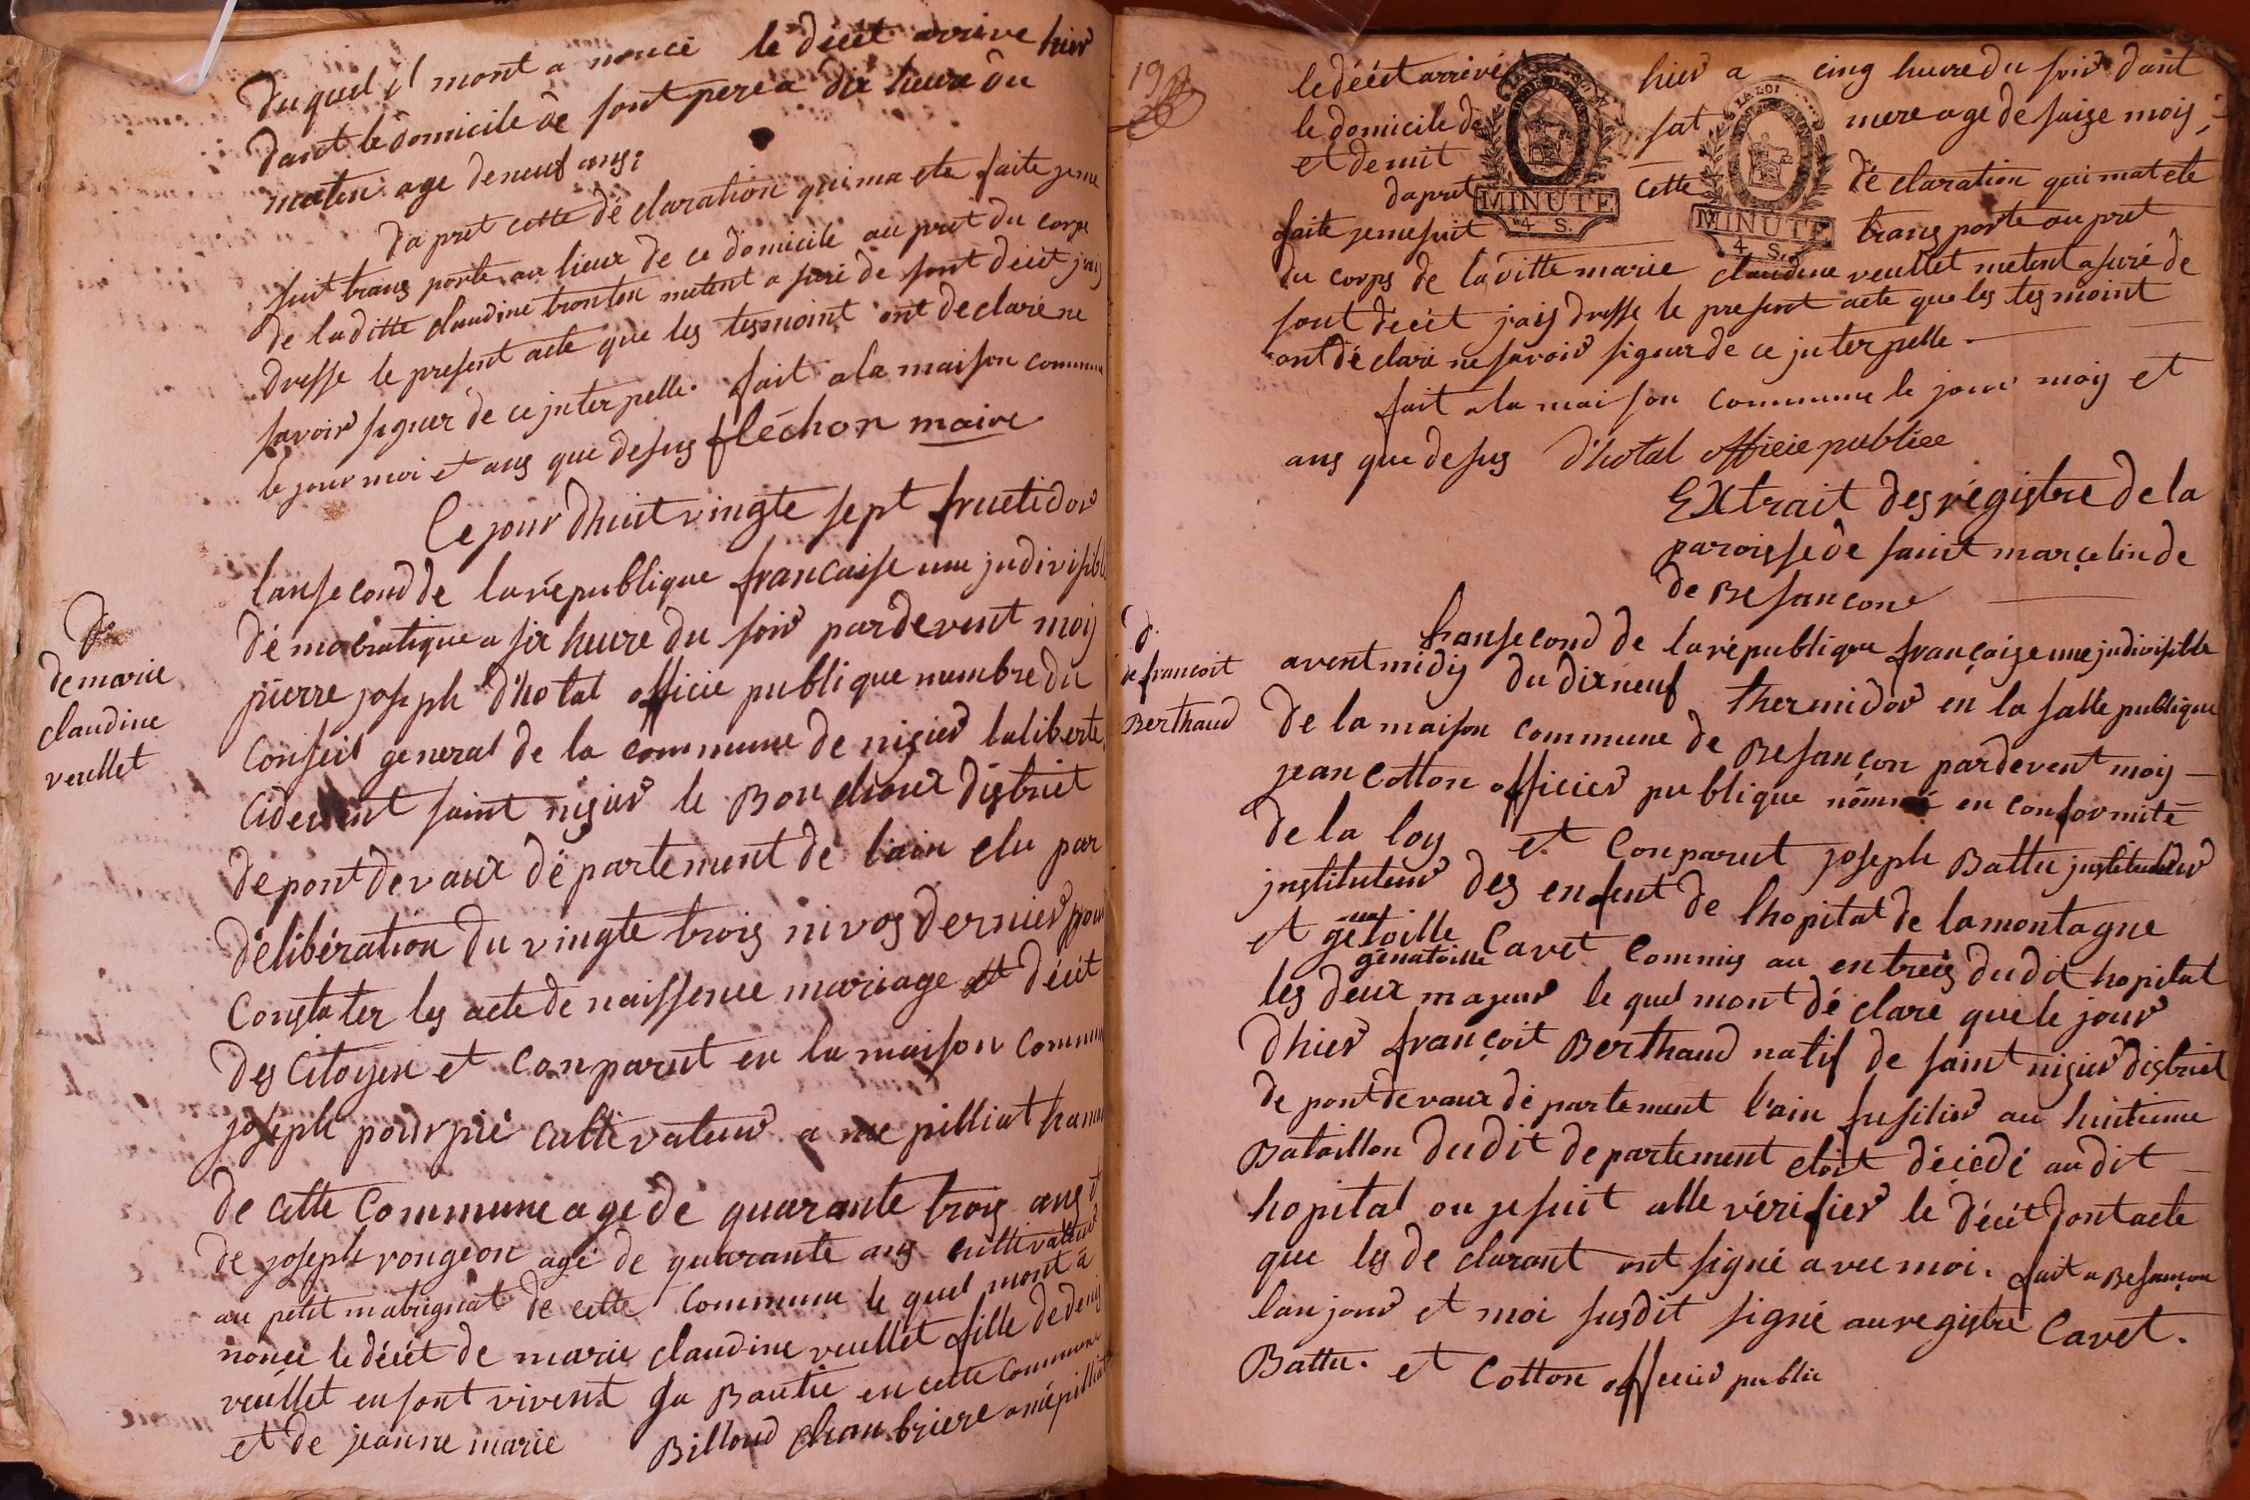 duquel il mont a noncé le décét arrivé hier
dant le domicile de sont pere a dix heure du
matin age de neuf ans
dapret cette déclaration qui ma ete faite je me
suit trans porte au lieux de ce domicile au pret du corps
de la ditte claudine tronton metent a suré de sont décét jais
dresse le present acte que les tesmoint ont declaré ne
savoir signer de ce jnterpelle. fait a la maison commune
le jour moi et ans que desus fléchon maire
Ce jour dhuit vingte sept fructidor
lan second de la république francaise une jndivisible
démocratique a six heure du soir pardevent moij
pierre joseph d'hotal officie publique membre du
Conseil general de la commune de nisier la liberte
cidevent saint nisier le Bouchoux district
de pont de vaux département de lain elu par
délibération du vingte trois nivos dernier pour
Constater les acte de naissence mariage et décét
des Citoyen et Conparut en la maison commune
joseph pourpié cultivateur a me pilliat hameau
de cette Commune age de quarante trois ans et
de joseph rongeon agé de quarante ans cultivateur
au petit matrignat de cette commune le quel mont a
noncé le décét de marie claudine veullet fille de denis
veullet en sont vivent Ga Bautie en cette commune
et de jeanne marie Billoud chambriere a mépilliat
D.
de marie
claudine
veullet
19
26
le décét arrivé hier a cinq heure du soir dant
le domicile de sat mere age de saize mois
et demit
dapret cette déclaration qui mat ete
faite je me suit trans porte au pret
MINUTE
4 S.
LA LOI
MINUTE
4 S.
du corps de la ditte marie claudine veullet metent asuré de
sont décét jaij dresse le present acte que les tes moint
ont déclaré ne savoir signer de ce jnterpelle.
fait a la maison commune le jour mois et
ans que desus d'hotal officie publice
EXtrait des régistre de la
paroisse de saint marcelin de
de BEsancon
d.
de francoit
Berthaud
Lan second de la république française une jndivisible
avent midij du dixneuf thermidor en la salle publique
de la maison commune de Besançon pardevent moij
jean Cotton officier publique nommé en conformité
de la loy et Conparut joseph Battu jnstituteur
jnstituteur des enfent de lhopital de la montagne
et getoille Cavet commis au entreés dudit hopital
genatoille
les deux majeur le quel mont déclare que le jour
dhier françoit Berthaud natif de saint nisier district
de pont devaux département l'ain fusilier au huitieme
Bataillon dudit departement etoit décédé audit
hopital ou je suit allé vérifier le décét dont acte
que les declarant ont signé avec moi. fait a Besançon
lan jour et moi susdit signé au registre Cavet.
Battu. et Cotton officier public